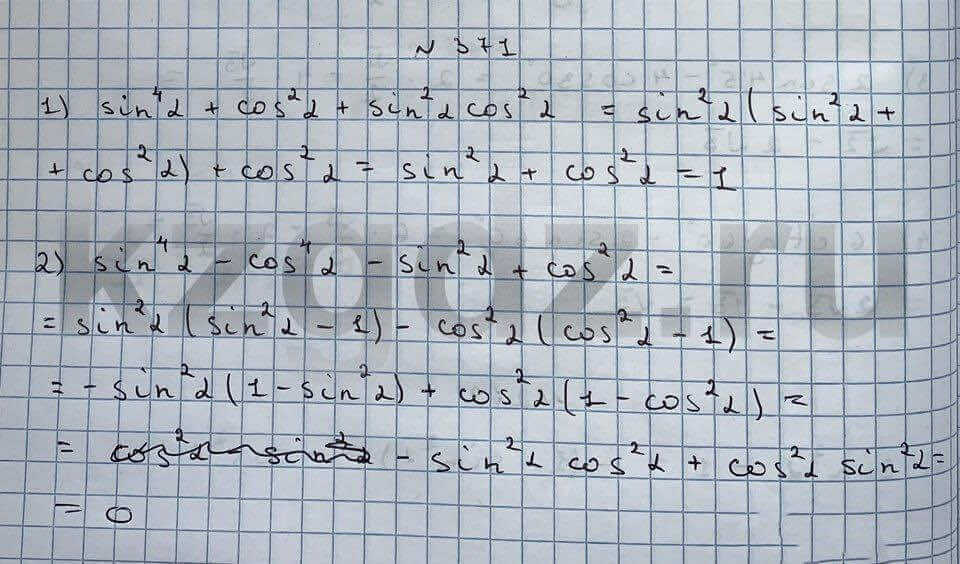 N 371
1) sin⁴α + cos²α + sin²α cos²α = sin²α (sin²α +
+ cos²α) + cos²α = sin²α + cos²α = 1
2) sin⁴α - cos⁴α - sin²α + cos²α =
= sin²α (sin²α - 1) - cos²α (cos²α - 1) =
= - sin²α (1 - sin²α) + cos²α (1 - cos²α) =
= - sin²α cos²α + cos²α sin²α =
= 0
kzgdz.ru